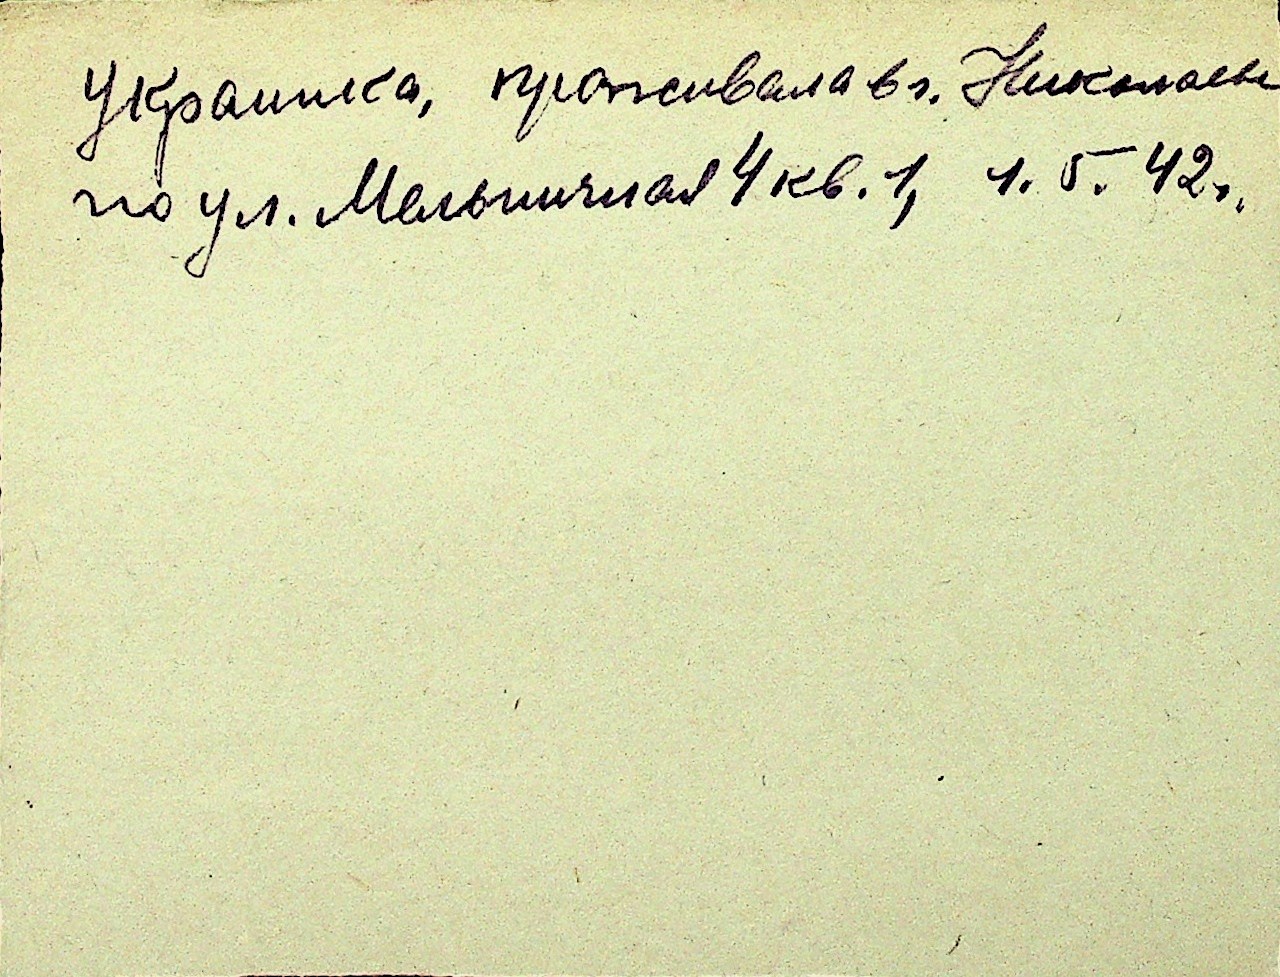 украинка, проживала в г. Николаеве
по ул. Мельничная 4 кв. 1, 1. 5. 42 г.